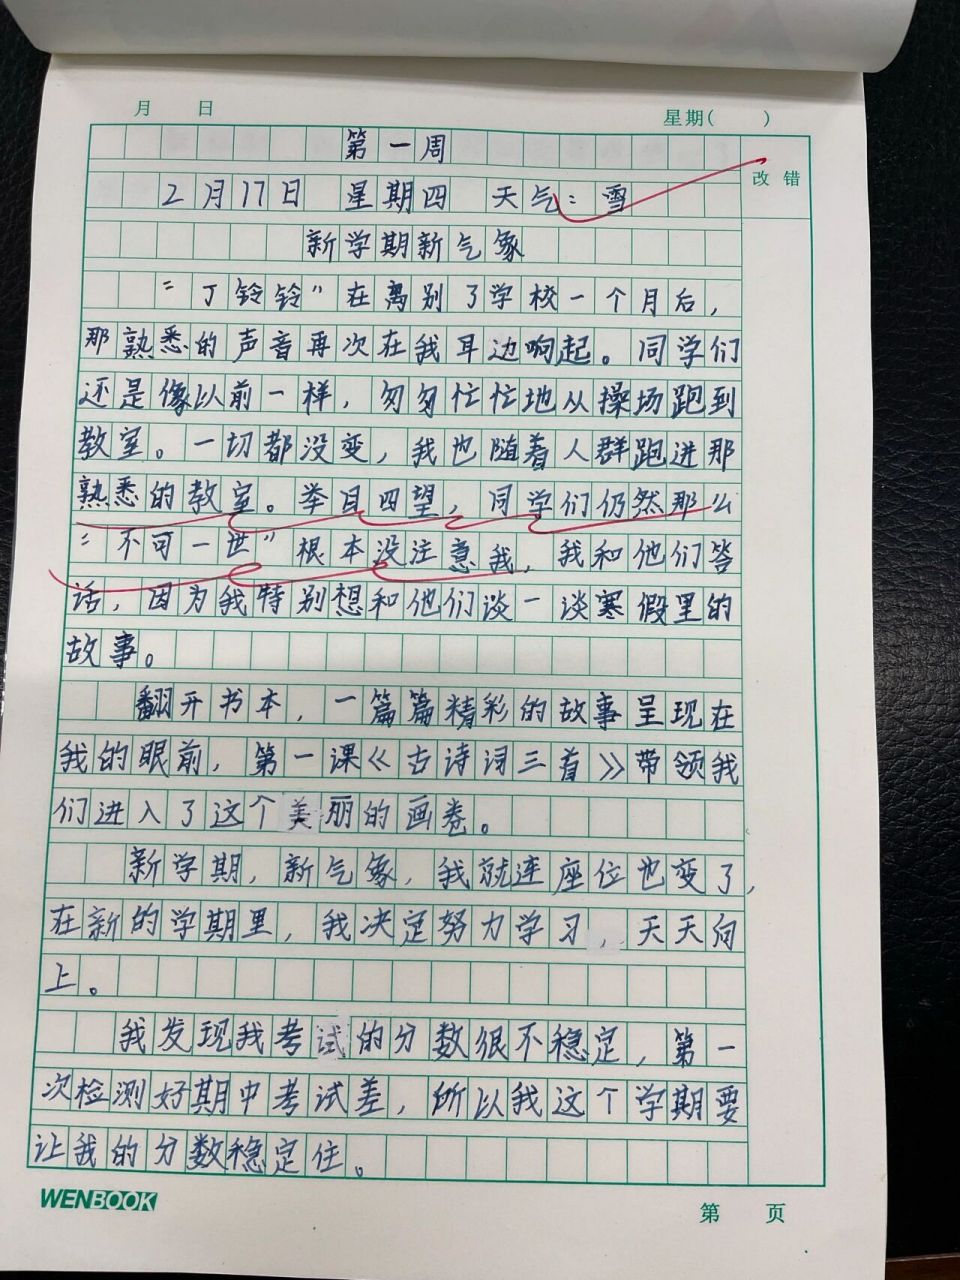 月 日 星期( )
改 错
第一周
2月17日 星期四 天气:雪
新学期新气象
“丁铃铃”在离别了学校一个月后，
那熟悉的声音再次在我耳边响起。同学们
还是像以前一样，匆匆忙忙地从操场跑到
教室。一切都没变，我也随着人群跑进那
熟悉的教室。举目四望，同学们仍然那么
“不可一世”根本没注意我，我和他们答
话，因为我特别想和他们谈一谈寒假里的
故事。
翻开书本，一篇篇精彩的故事呈现在
我的眼前，第一课《古诗词三首》带领我
们进入了这个美丽的画卷。
新学期，新气象，我就连座位也变了，
在新的学期里，我决定努力学习，天天向
上。
我发现我考试的分数很不稳定，第一
次检测好期中考试差，所以我这个学期要
让我的分数稳定住。
WENBOOK
第 页